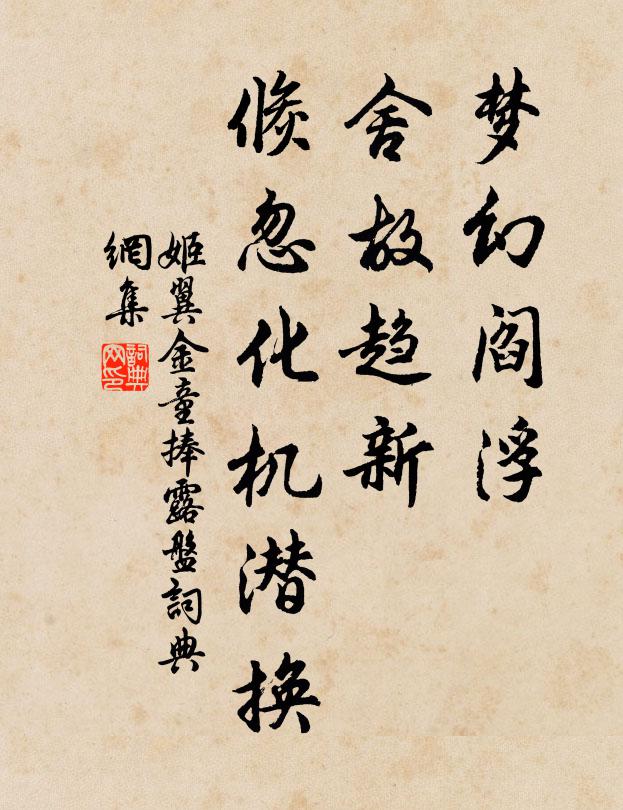 梦幻阎浮
舍故趋新
倏忽化机潜换
姬翼金童捧露盤詞典
網集
詞典
网印